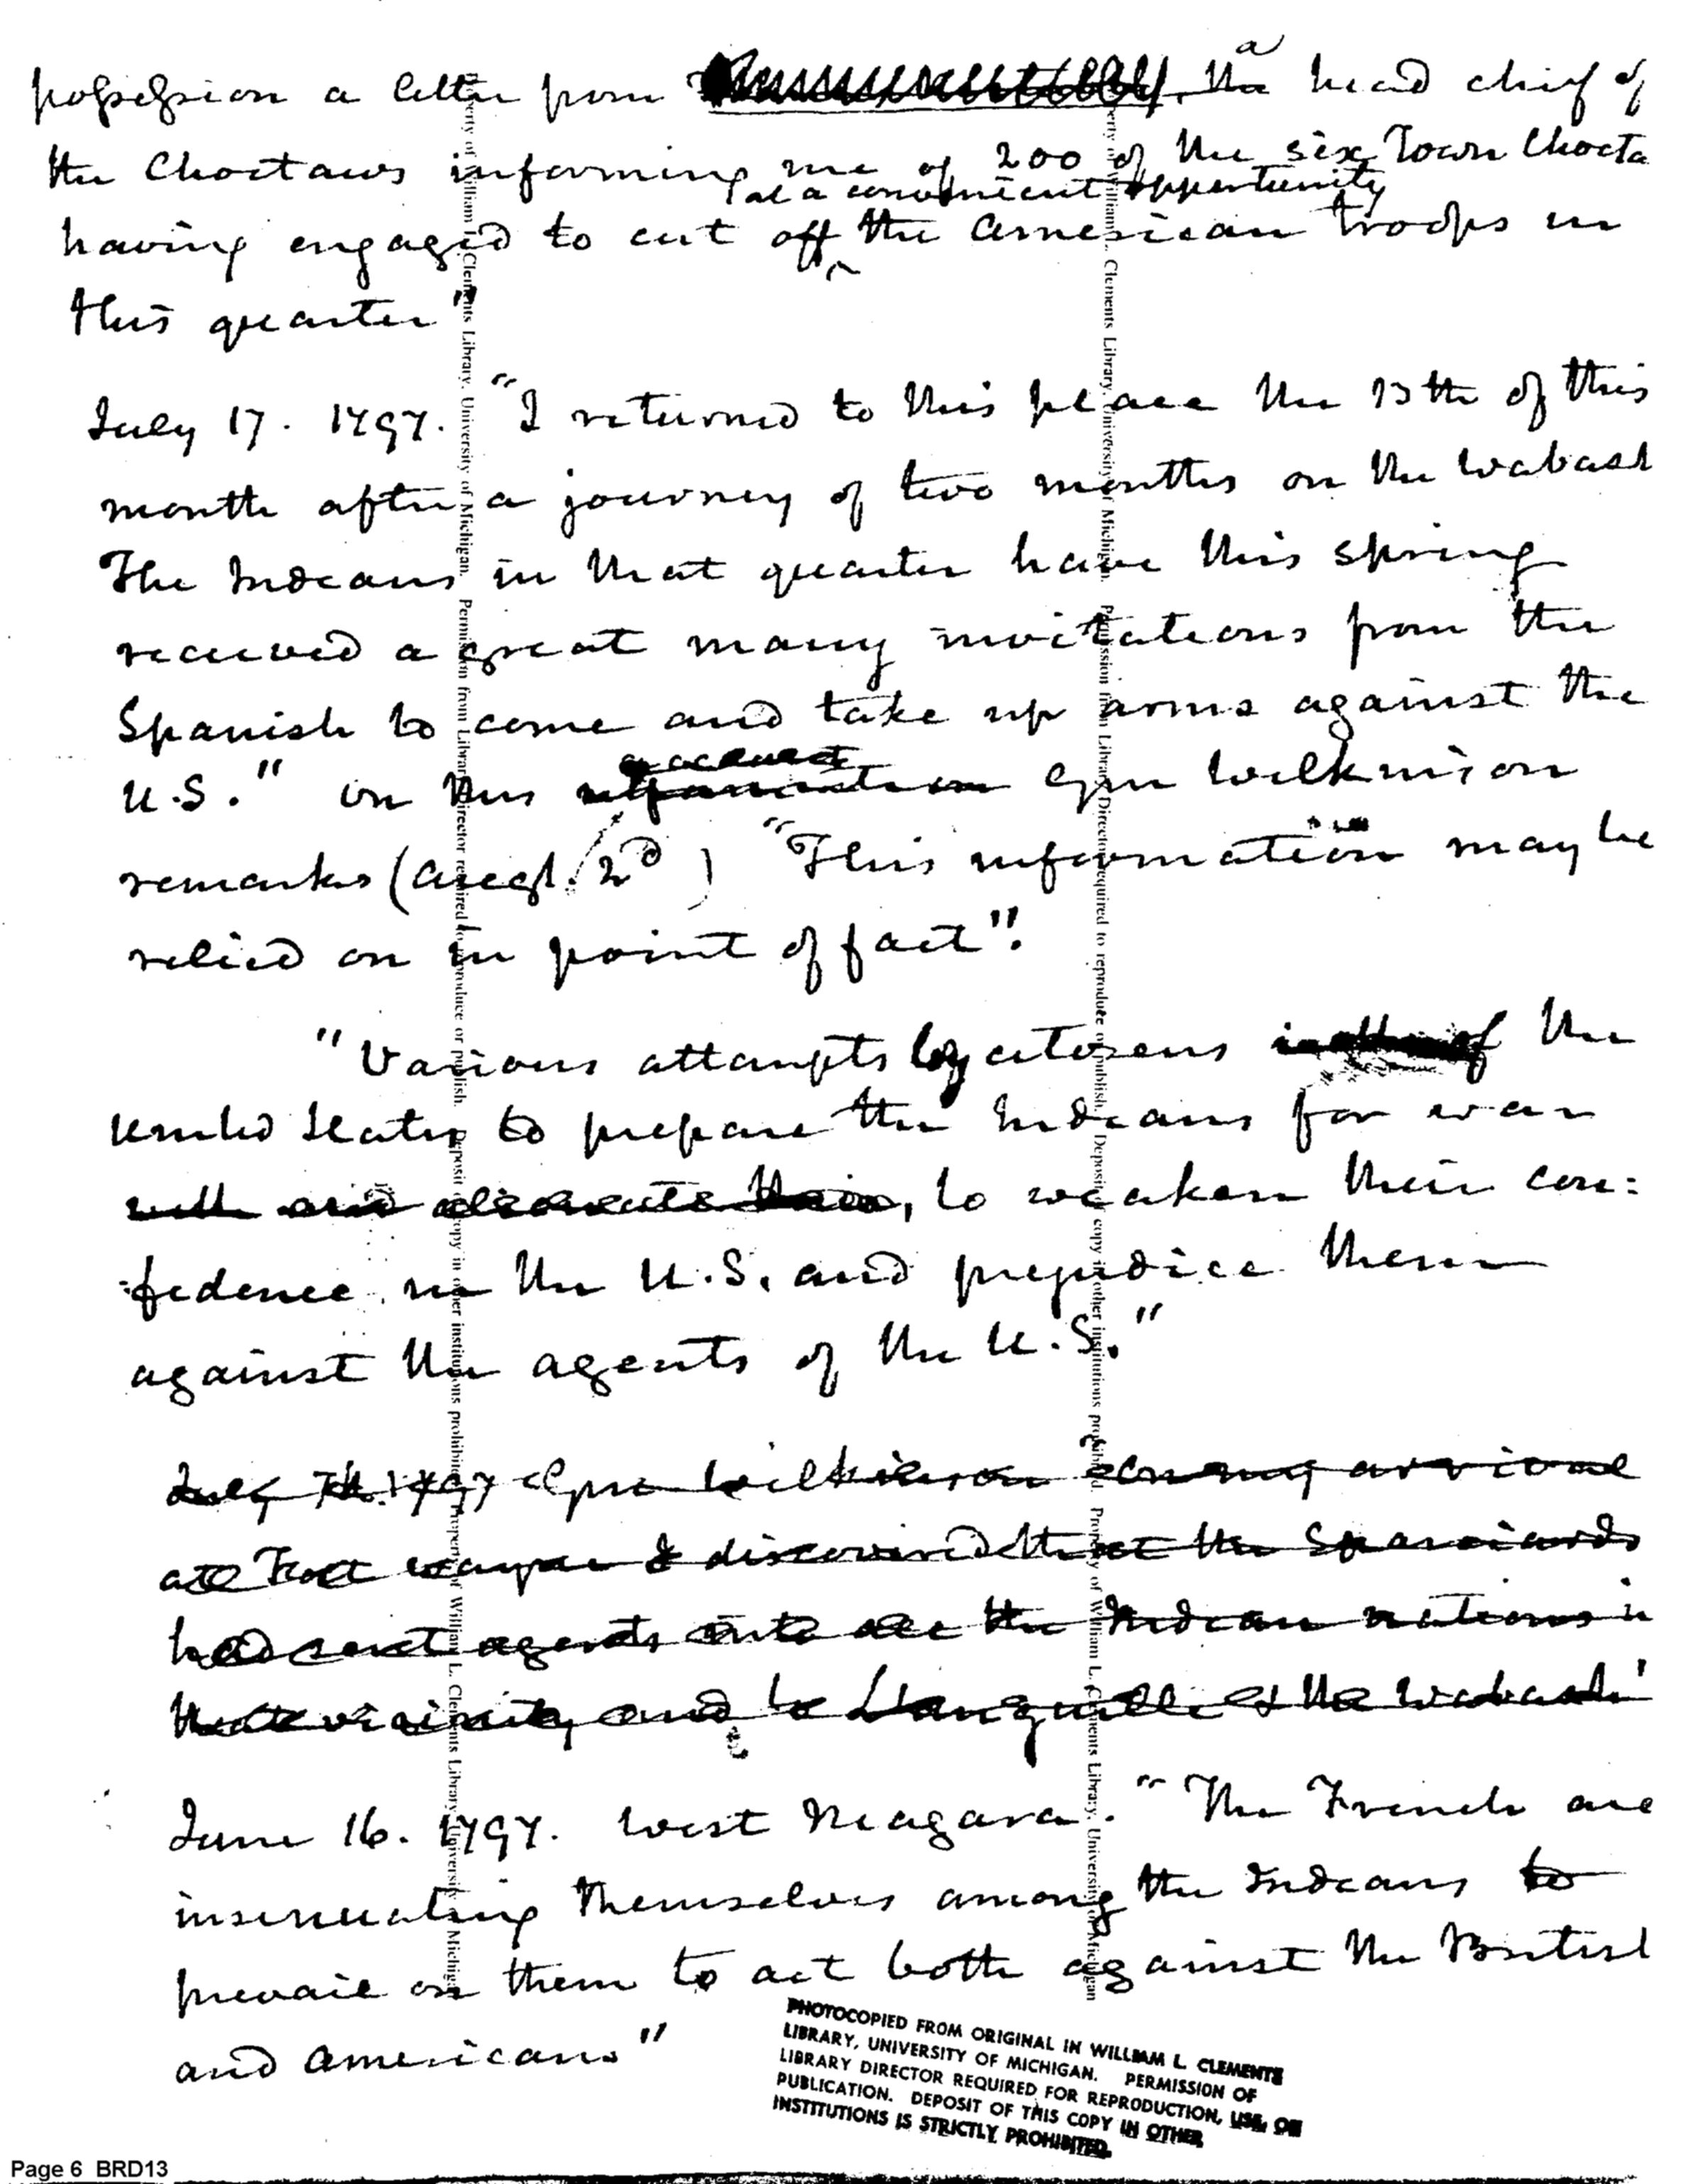 possession a letter from the a head chief of
the Choctaws informing me of 200 of the six Town Chocta
at a convenient opportunity
having engaged to cut off the American troops in
this quarter"
July 17. 1797. "I returned to this place the 13th of this
month after a journey of two months on the Wabash
The Indians in that quarter have this spring
received a great many invitations from the
Spanish to come and take up arms against the
account
U.S." on this information Gen Wilkinson
remarks (augt. 2d) "This information may be
relied on in point of fact".
"Various attempts by citizens of the
United States to prepare the Indians for war
with and alienate their, to weaken their con:
:fidence in the U.S. and prejudice them
against the agents of the U.S."
July 7th. 1797 Gen Wilkinson "on my arrival
at Fort wayne I discovered that the Spaniards
had sent agents into all the Indian nations in
that vicinity and to L'anguille & the Wabash"
June 16. 1797. West Niagara. "The French are
insinuating themselves among the Indians to
prevail on them to act both against the British
and Americans"
Property of William L. Clements Library, University of Michigan. Permission from Library Director required to reproduce or publish. Deposit of copy in other institutions prohibited.
Property of William L. Clements Library, University of Michigan
Property of William L. Clements Library, University of Michigan. Permission from Library Director required to reproduce or publish. Deposit of copy in other institutions prohibited.
Property of William L. Clements Library, University of Michigan
PHOTOCOPIED FROM ORIGINAL IN WILLIAM L. CLEMENTS
LIBRARY, UNIVERSITY OF MICHIGAN. PERMISSION OF
LIBRARY DIRECTOR REQUIRED FOR REPRODUCTION, USE, OR
PUBLICATION. DEPOSIT OF THIS COPY IN OTHER
INSTITUTIONS IS STRICTLY PROHIBITED.
Page 6 BRD13